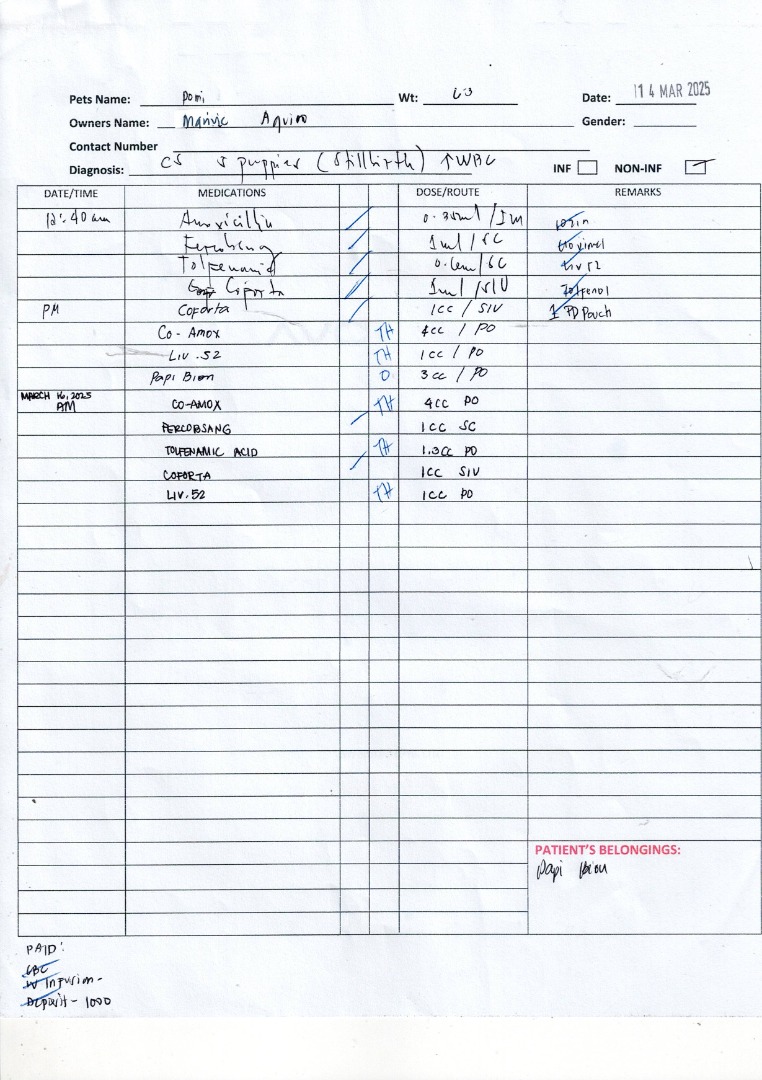 Pets Name: Pomi Wt: Date: 14 MAR 2025
Owners Name: Manvic Aquino Gender:
Contact Number
Diagnosis: CS 3 puppies (Stillbirth) ↑WBC INF NON-INF
DATE/TIME MEDICATIONS DOSE/ROUTE REMARKS
12:40 am Amoxicillin 0.35ml / IM
Fercobsang 1ml / SC
Tolfenamid / SC Liv 52
Coforta 1ml / SIV Tolfenol
PM Coforta 1cc / SIV 1 PD Pouch
Co-Amox TH 4cc / PO
Liv.52 TH 1cc / PO
Papi Bion O 3cc / PO
MARCH 16, 2025
AM CO-AMOX TH 4cc PO
FERCOBSANG 1cc SC
TOLFENAMIC ACID TH 1.3cc PO
COFORTA 1cc SIV
LIV.52 TH 1cc PO
PATIENT'S BELONGINGS:
Papi bion
PAID:
CBC
IV Infusion-
Deposit - 1000